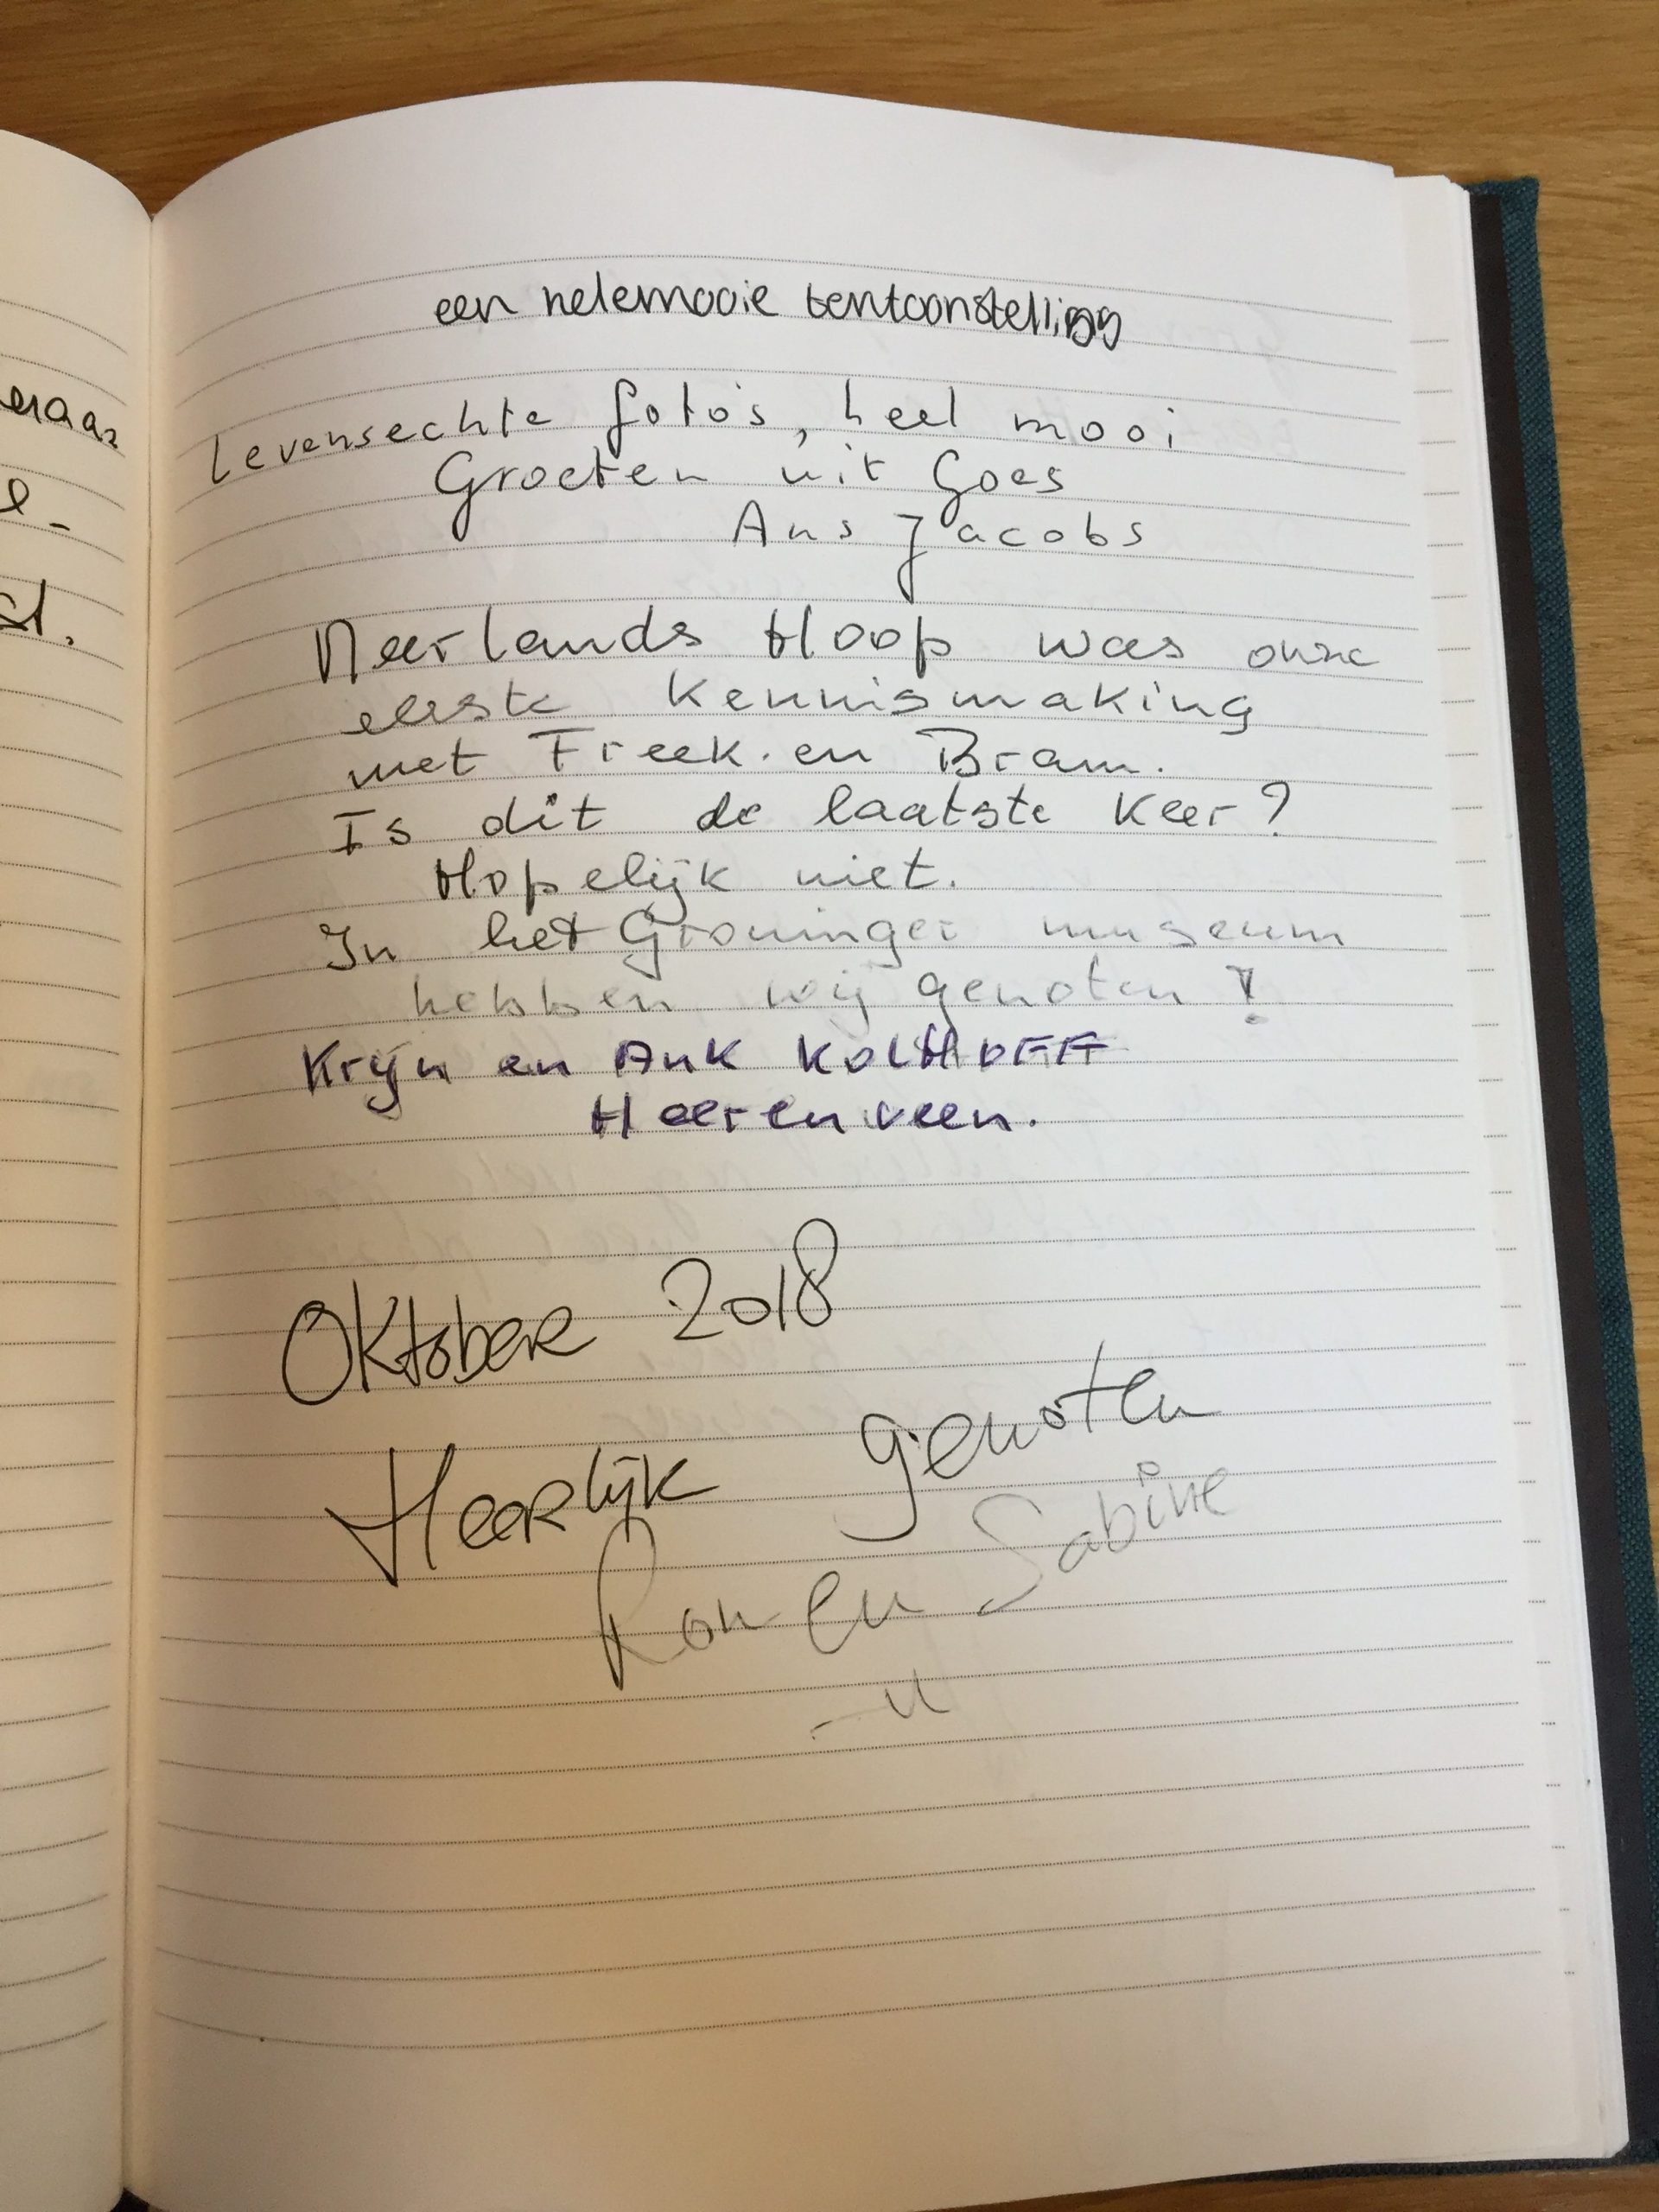 een helemooie tentoonstelling
Levensechte foto's, heel mooi
Groeten uit Goes
Ans Jacobs
Neerlands Hoop was onze
eerste kennismaking
met Freek en Bram.
Is dit de laatste keer?
Hopelijk niet.
In het Groninger museum
hebben wij genoten!
Krijn en Ank KOLTHOFF
Heerenveen.
Oktober 2018
Heerlijk genoten
Ron en Sabine